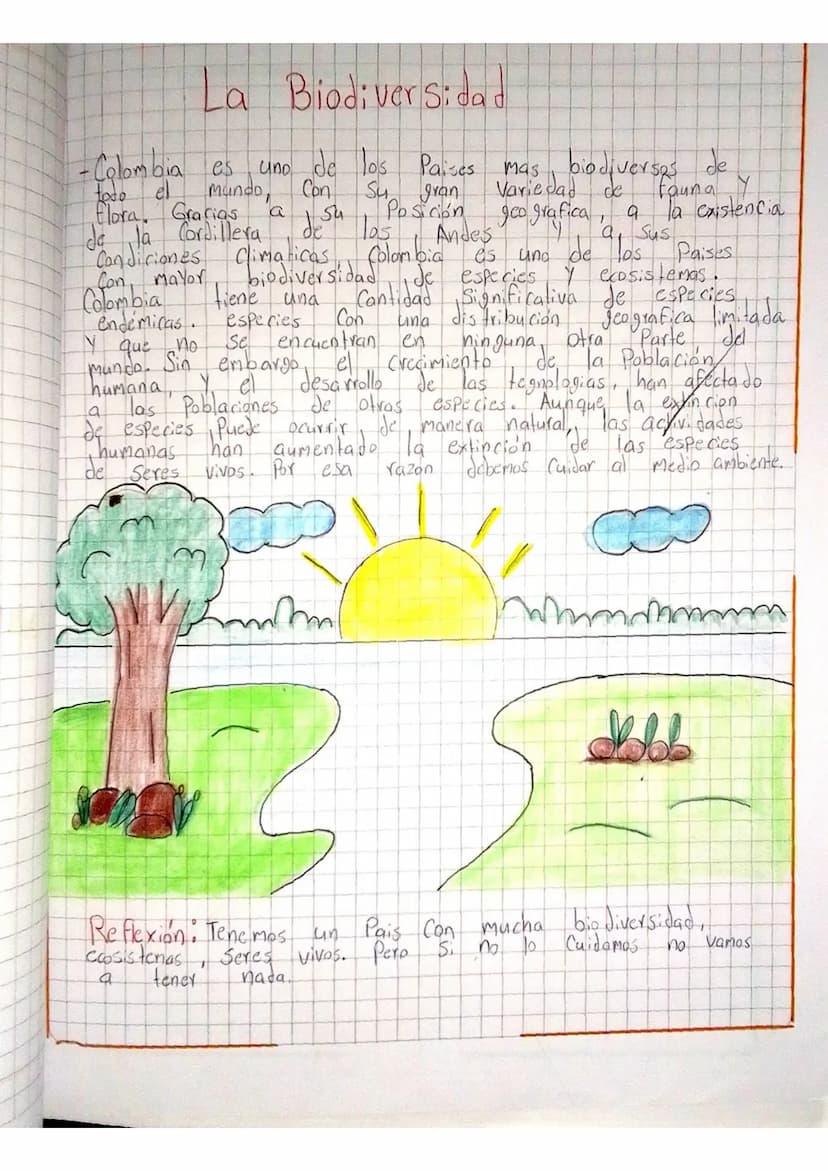 La Biodiversidad
- Colombia es uno de los Paises mas biodiversos de
todo el mundo, Con Su gran Variedad de fauna y
flora. Gracias a su Posición geografica, a la existencia
de la Cordillera de los Andes y a sus
Condiciones climaticas, Colombia es uno de los Paises
Con mayor biodiversidad de especies y ecosistemas.
Colombia tiene una Cantidad Significativa de especies
endémicas. especies Con una distribución geografica limitada
y que no se encuentran en ninguna otra Parte del
mundo. Sin embargo, el crecimiento de la Población
humana, y el desarrollo de las tegnologias, han afectado
a las Poblaciones de otras especies. Aunque la extincion
de especies Puede ocurrir de manera natural, las actividades
humanas han aumentado la extinción de las especies
de Seres vivos. Por esa razón debemos Cuidar al medio ambiente.
Reflexión: Tenemos un Pais Con mucha biodiversidad,
ecosistemas, Seres vivos. Pero Si no lo Cuidamos no vamos
a tener nada.